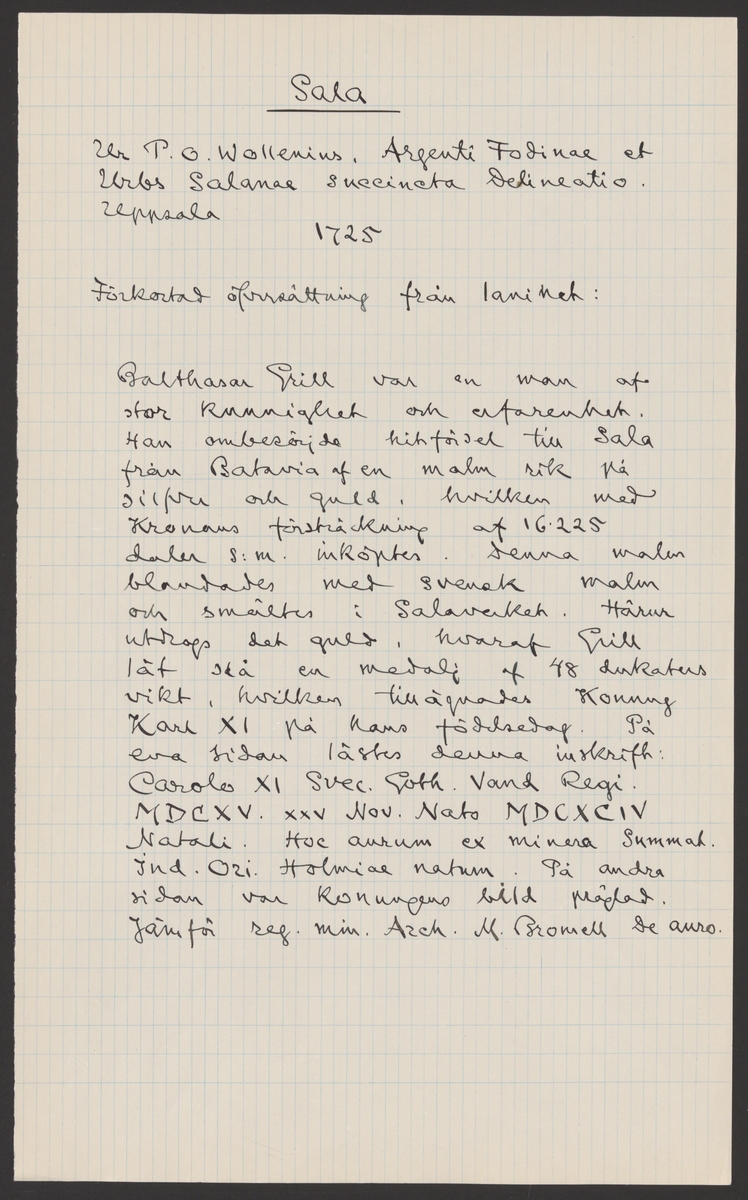 Sala
Ur P. O. Wollenius, Argenti Fodinae et
Urbs Salanae succincta Delineatio.
Uppsala
1725
Förkortad öfversättning från latinet:
Balthasar Grill var en man af
stor kunnighet och erfarenhet.
Han ombesörjde hitförsel till Sala
från Batavia af en malm rik på
silfver och guld, hvilken med
Kronans försträckning af 16.225
daler s:m. inköptes. Denna malm
blandades med svensk malm
och smältes i Salaverket. Härur
utdrogs det guld, hvaraf Grill
lät slå en medalj af 48 dukaters
vikt, hvilken tillägnades Konung
Karl XI på hans födelsedag. På
ena sidan lästes denna inskrift:
Carolo XI Svec. Goth. Vand Regi.
MDCXV. xxv Nov. Nato MDCXCIV
Natali. Hoc aurum ex minera Summat.
Ind. Ori. Holmiae natum. På andra
sidan var konungens bild präglad.
Jämför reg. min. Arch. M. Bromell De auro.